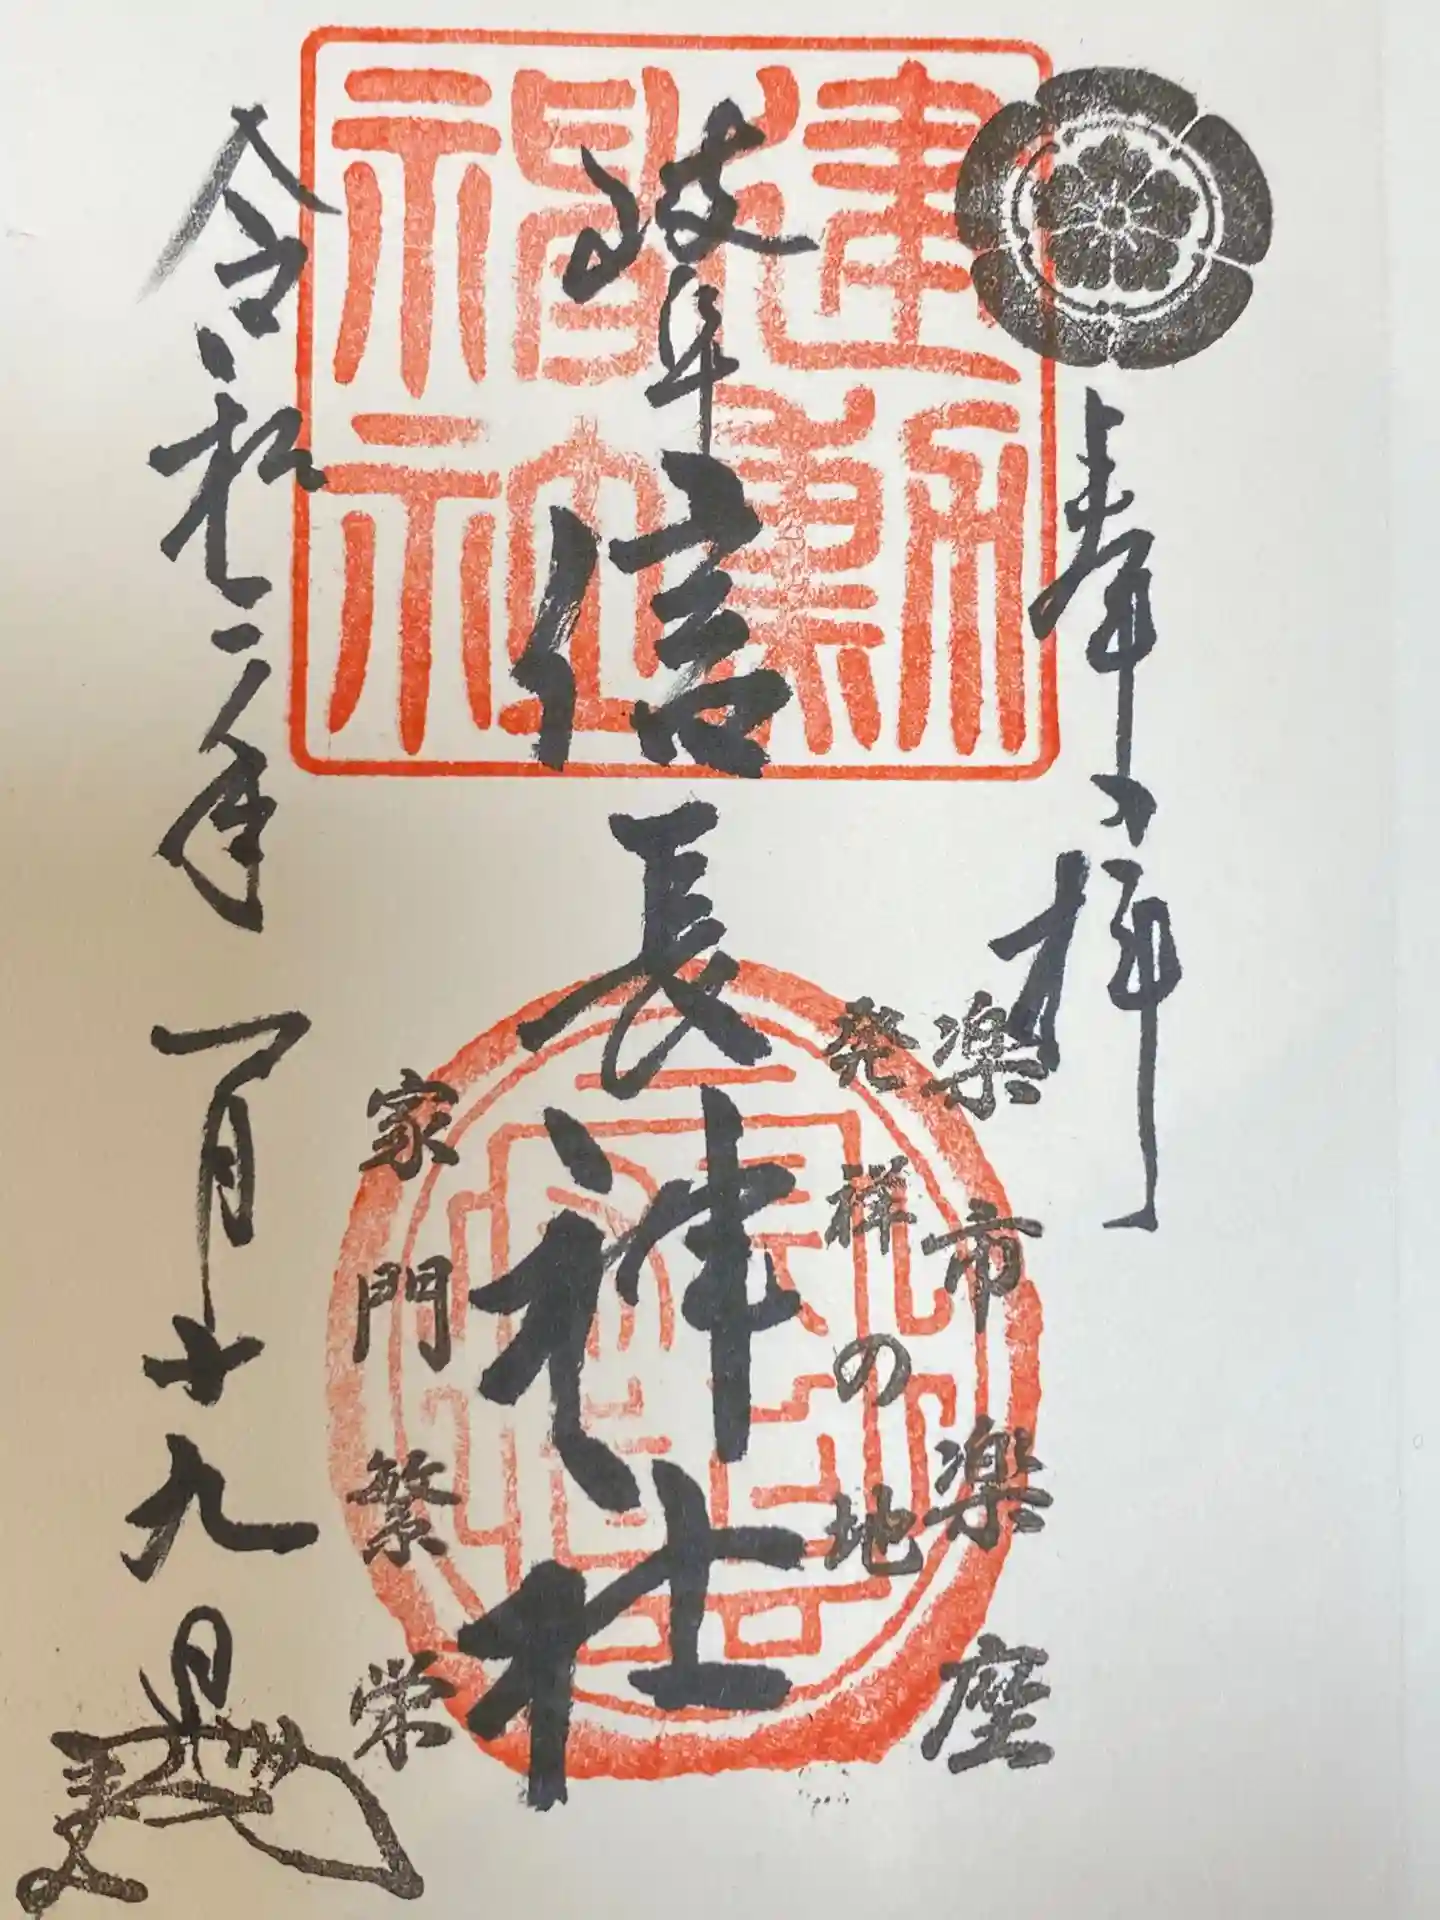 奉拝
楽市楽座
発祥の地
建勲
神社
岐阜信長神社
家門繁栄
令和二年一月十九日